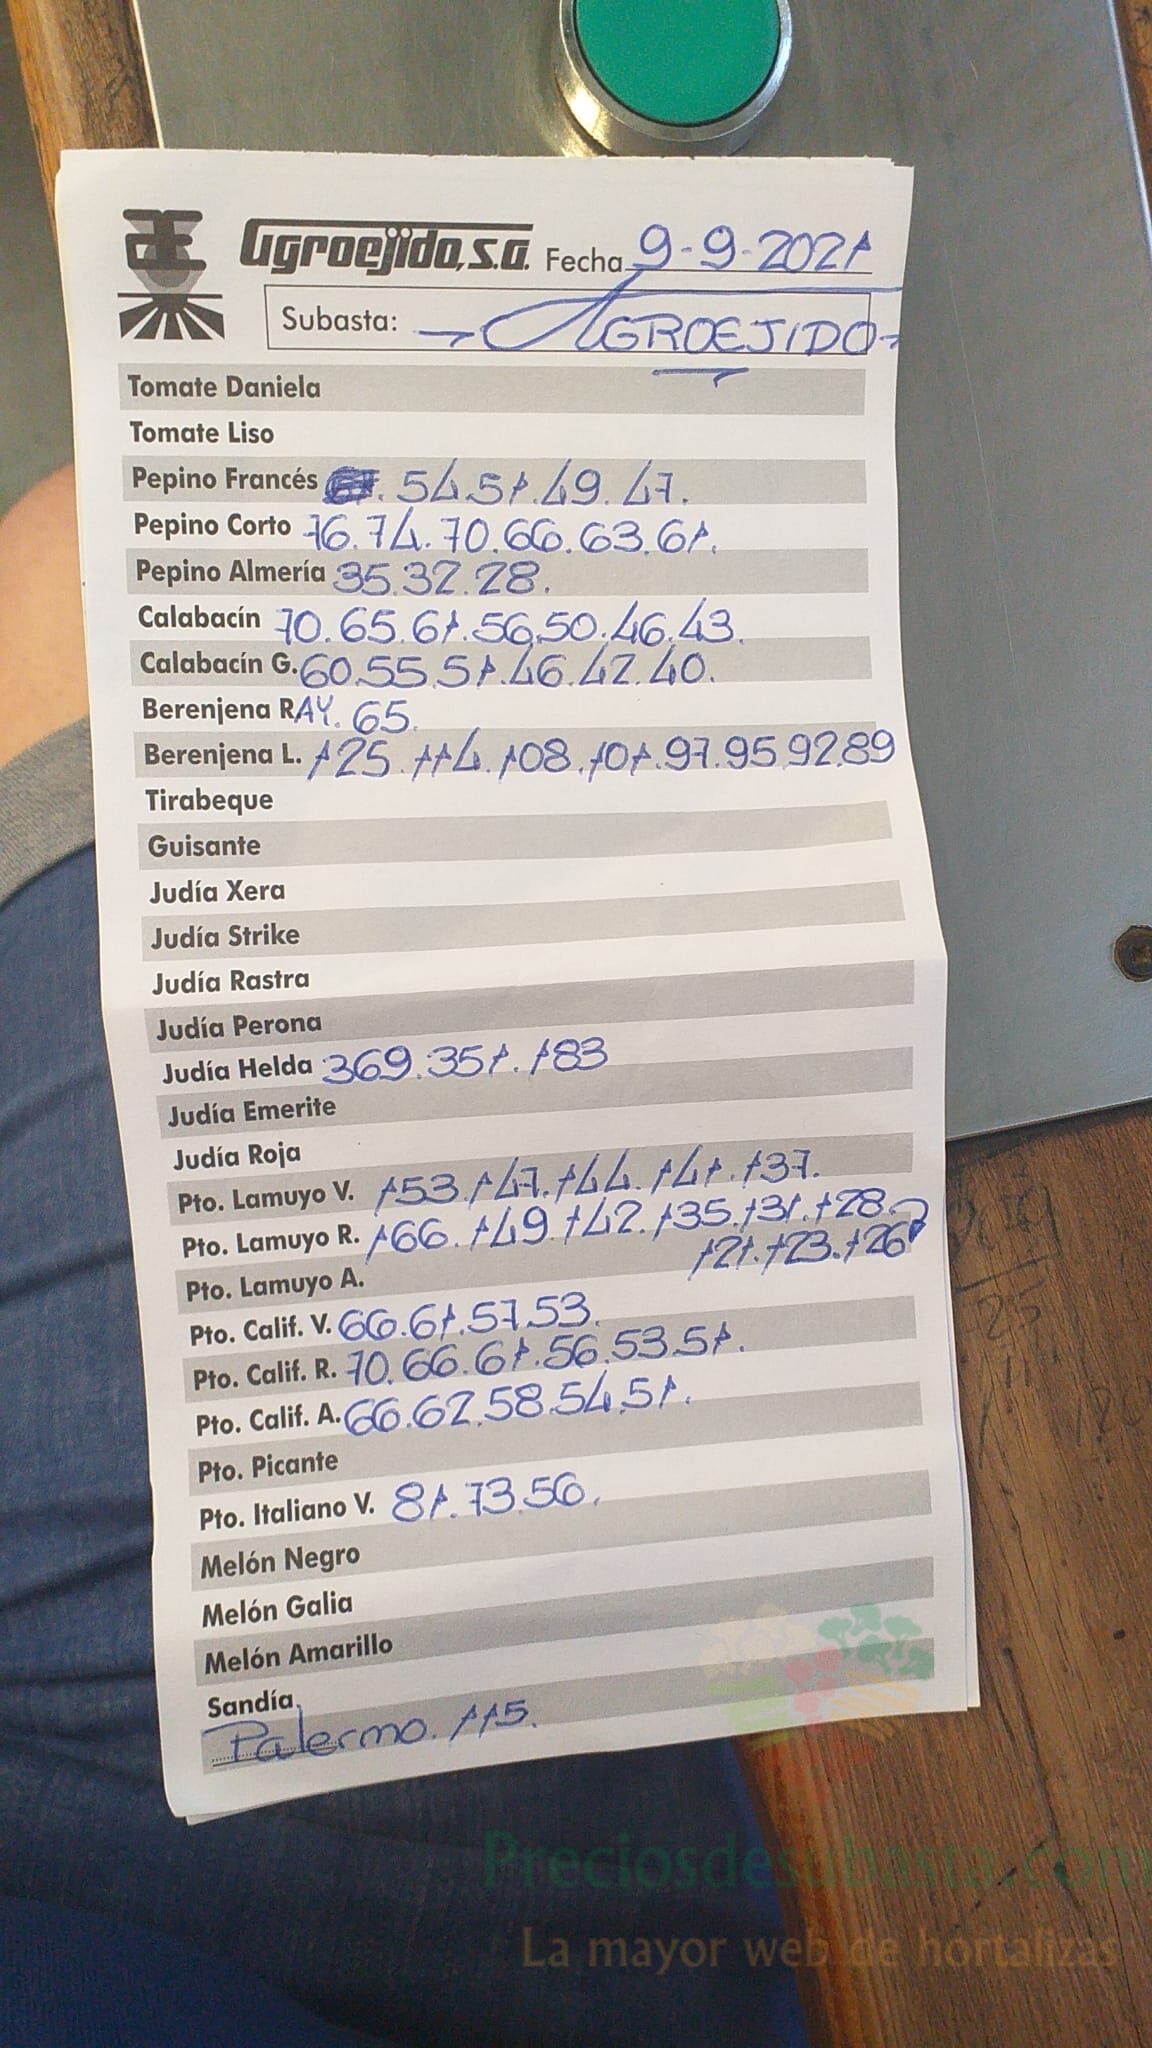 Agroejido, S.A. Fecha 9-9-2021
Subasta: → AGROEJIDO-
Tomate Daniela
Tomate Liso
Pepino Francés . 54.51.49.47.
Pepino Corto 76.74.70.66.63.61.
Pepino Almería 35.32.28.
Calabacín 70.65.61.56.50.46.43.
Calabacín G. 60.55.51.46.42.40.
Berenjena RAY. 65.
Berenjena L. 125.114.108.101.97.95.92.89
Tirabeque
Guisante
Judía Xera
Judía Strike
Judía Rastra
Judía Perona
Judía Helda 369.351.183
Judía Emerite
Judía Roja
Pto. Lamuyo V. 153.147.144.141.137.
Pto. Lamuyo R. 166.149.142.135.131.128.
121.123.126
Pto. Lamuyo A.
Pto. Calif. V. 66.61.57.53.
Pto. Calif. R. 70.66.61.56.53.51.
Pto. Calif. A. 66.62.58.54.51.
Pto. Picante
Pto. Italiano V. 81.73.56.
Melón Negro
Melón Galia
Melón Amarillo
Sandía
Palermo. 115.
Preciosdesubasta.com
La mayor web de hortalizas